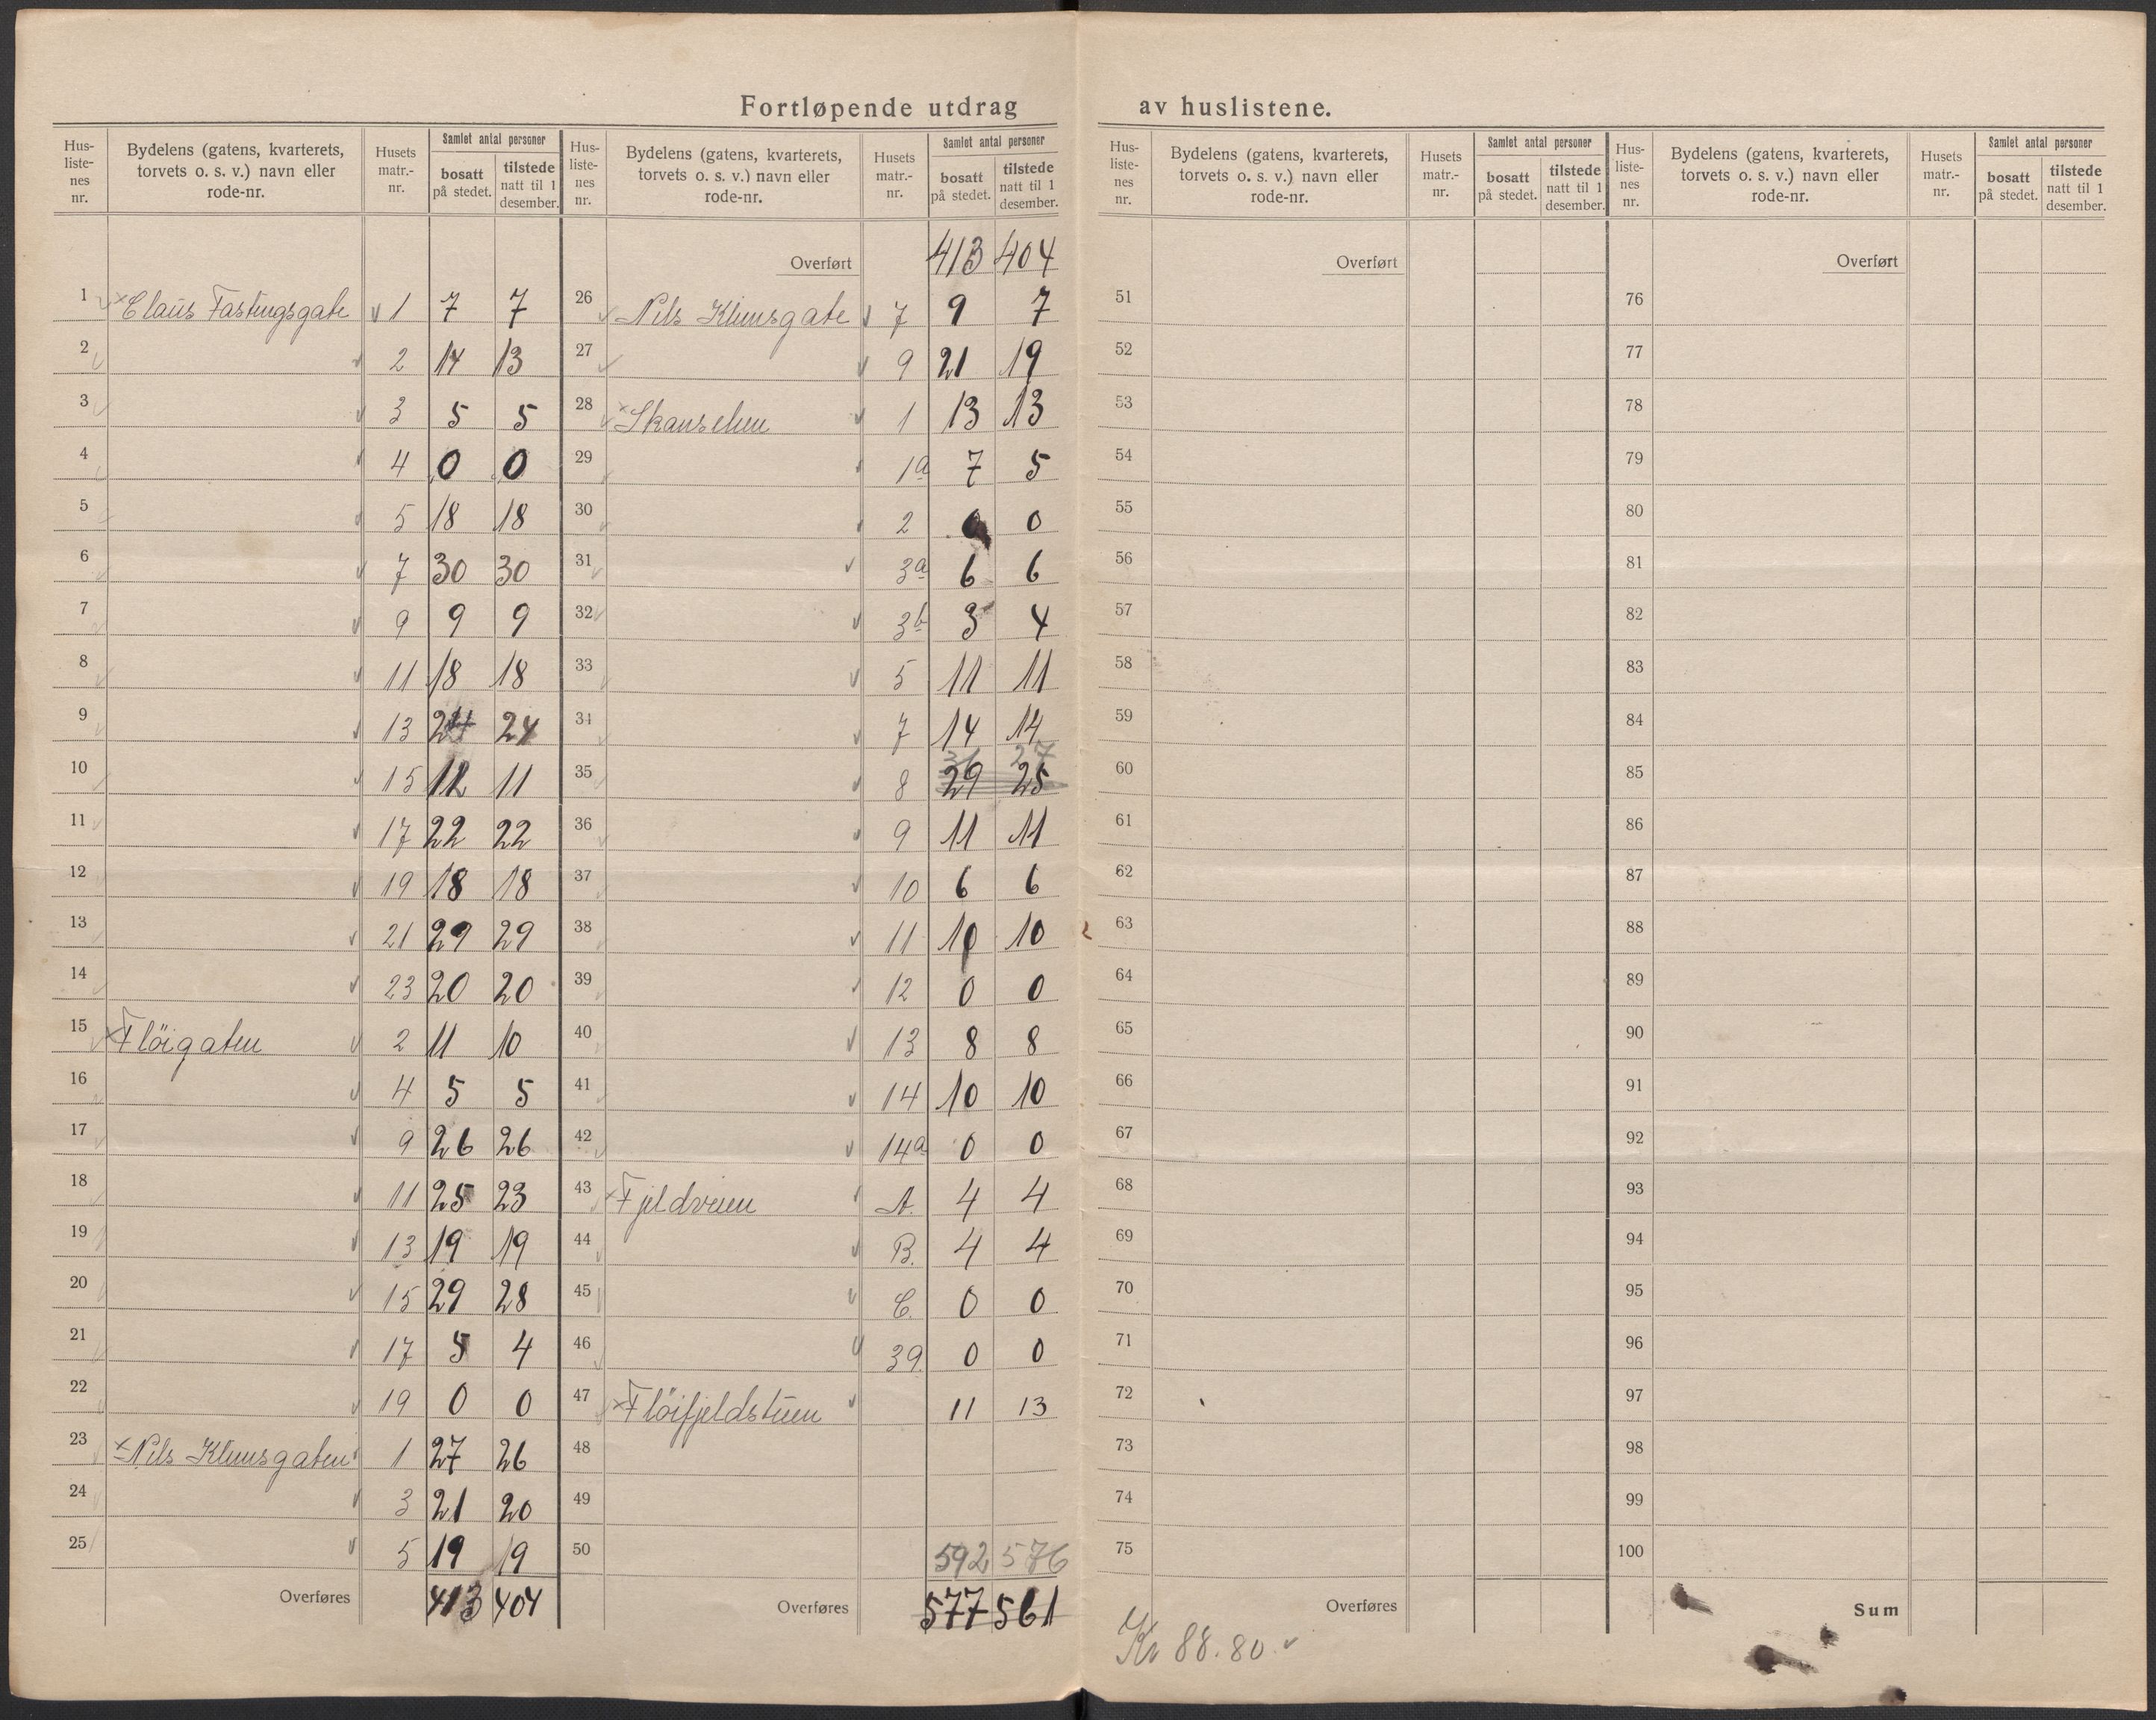 Fortløpende utdrag av huslistene.
Hus-listenes nr. Bydelens (gatens, kvarterets, torvets o. s. v.) navn eller rode-nr. Husets matr.-nr. Samlet antal personer bosatt på stedet. tilstede natt til 1 desember.
1 Claus Fastingsgate 1 7 7
2 2 14 13
3 3 5 5
4 4 0 0
5 5 18 18
6 7 30 30
7 9 9 9
8 11 18 18
9 13 24 24
10 15 12 11
11 17 22 22
12 19 18 18
13 21 29 29
14 23 20 20
15 Flöigaten 2 11 10
16 4 5 5
17 9 26 26
18 11 25 23
19 13 19 19
20 15 29 28
21 17 5 4
22 19 0 0
23 Nils Klimsgaten 1 27 26
24 3 21 20
25 5 19 19
Overføres 413 404
Hus-listenes nr. Bydelens (gatens, kvarterets, torvets o. s. v.) navn eller rode-nr. Husets matr.-nr. Samlet antal personer bosatt på stedet. tilstede natt til 1 desember.
Overført 413 404
26 Nils Klimsgate 7 9 7
27 9 21 19
28 Skanselien 1 13 13
29 1a 7 5
30 2 0 0
31 3a 6 6
32 3b 3 4
33 5 11 11
34 7 14 14
27
35 8 29 25
36 9 11 11
37 10 6 6
38 11 10 10
39 12 0 0
40 13 8 8
41 14 10 10
42 14a 0 0
43 Fjeldveien A. 4 4
44 B. 4 4
45 C. 0 0
46 39. 0 0
47 Flöifjeldstuen 11 13
48
49
50 592 576
Overføres 577 561
Hus-listenes nr. Bydelens (gatens, kvarterets, torvets o. s. v.) navn eller rode-nr. Husets matr.-nr. Samlet antal personer bosatt på stedet. tilstede natt til 1 desember.
Overført
51
52
53
54
55
56
57
58
59
60
61
62
63
64
65
66
67
68
69
70
71
72
73
74
75
Overføres
Kr 88.80.
Hus-listenes nr. Bydelens (gatens, kvarterets, torvets o. s. v.) navn eller rode-nr. Husets matr.-nr. Samlet antal personer bosatt på stedet. tilstede natt til 1 desember.
Overført
76
77
78
79
80
81
82
83
84
85
86
87
88
89
90
91
92
93
94
95
96
97
98
99
100
Sum